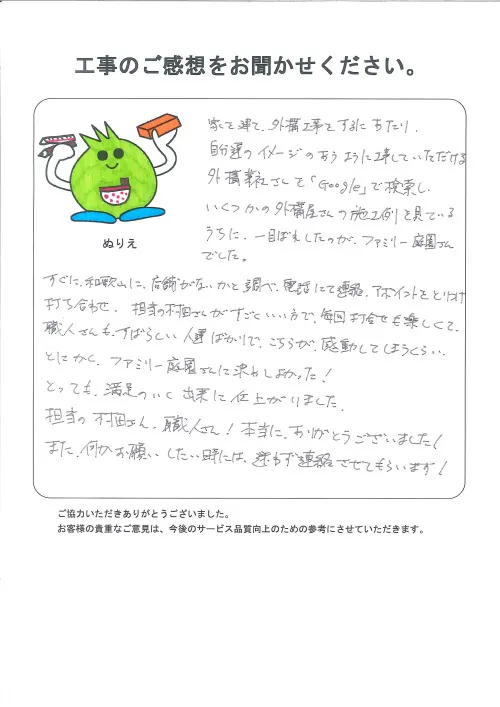 工事のご感想をお聞かせください。
家を建て、外構工事をするにあたり、
自分達のイメージのあうように工事していただける
外構業社さんを「Google」で検索し
いくつかの外構屋さんの施工例を見ている
うちに、一目ぼれしたのが、ファミリー庭園さん
でした。
ぬりえ
すぐに、和歌山に、店舗がないかと調べ、電話にて連絡、アポイントをとりつけ
打ち合わせ。担当の村田さんがすごくいい方で、毎回打合せも楽しくて、
職人さんも、すばらしい人達ばかりで、こちらが、感動してしまうくらい。
とにかく、ファミリー庭園さんに決めてよかった！
とっても、満足のいく出来に仕上がりました。
担当の村田さん、職人さん！本当に、ありがとうございました！
また、何かお願いしたい時には、迷わず連絡させてもらいます！
ご協力いただきありがとうございました。
お客様の貴重なご意見は、今後のサービス品質向上のための参考にさせていただきます。